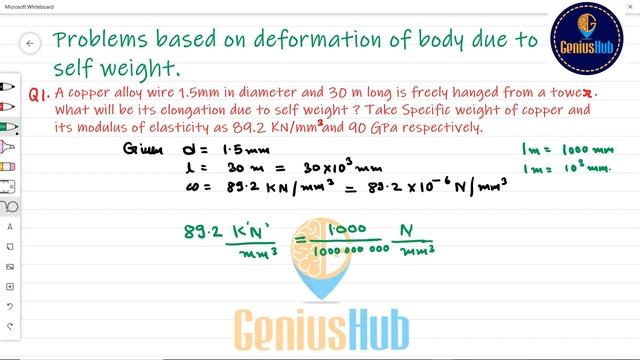 Microsoft Whiteboard
Problems based on deformation of body due to
self weight.
GeniusHub
Q1. A copper alloy wire 1.5mm in diameter and 30 m long is freely hanged from a tower.
What will be its elongation due to self weight ? Take Specific weight of copper and
its modulus of elasticity as 89.2 KN/mm³ and 90 GPa respectively.
Given d = 1.5 mm
l = 30 m = 30×10³ mm
ω = 89.2 KN/mm³ = 89.2 × 10⁻⁶ N/mm³
1m = 1000 mm
1m = 10³ mm.
89.2 KN/mm³ = 1000/1000 000 000 N/mm³
GeniusHub